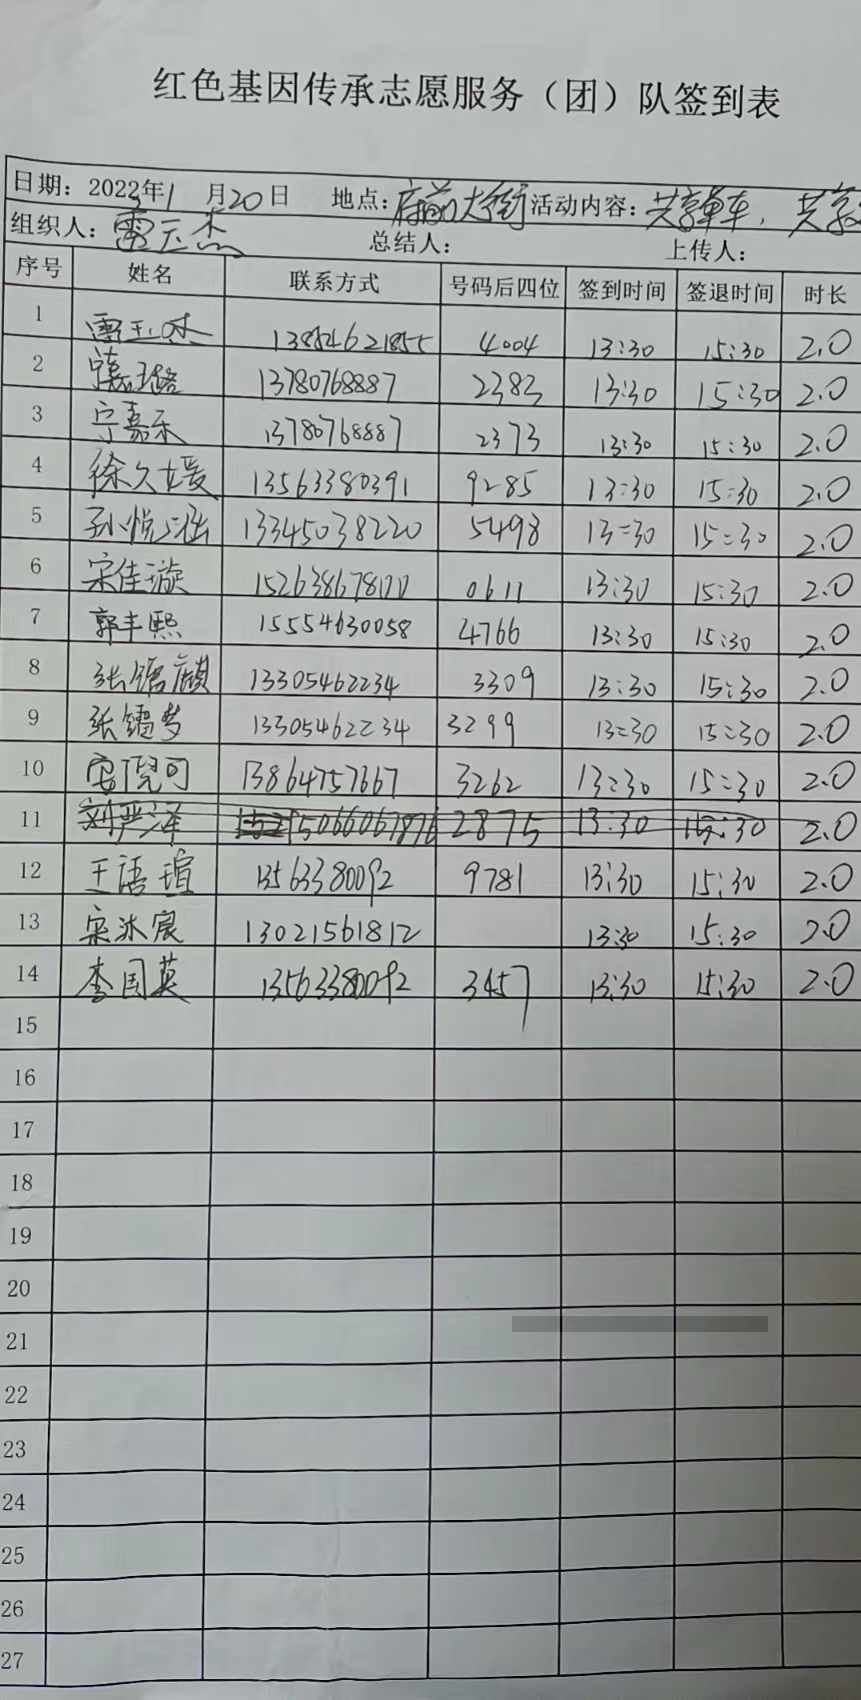 红色基因传承志愿服务（团）队签到表
日期：2023年1月20日 地点：府前大街 活动内容：共享单车，共享
组织人：雷玉杰 总结人： 上传人：
序号 姓名 联系方式 号码后四位 签到时间 签退时间 时长
1 雷玉杰 4004 13:30 15:30 2.0
2 13780768887 2383 13:30 15:30 2.0
3 宁嘉禾 13780768887 2373 13:30 15:30 2.0
4 徐久媛 13563380391 9285 13:30 15:30 2.0
5 孙悦涵 13345038220 5498 13:30 15:30 2.0
6 宋佳璇 0611 13:30 15:30 2.0
7 郭丰熙 15554630058 4766 13:30 15:30 2.0
8 13305462234 3309 13:30 15:30 2.0
9 13305462234 3299 13:30 15:30 2.0
10 安倪可 13864757667 3262 13:30 15:30 2.0
11 刘严泽 15066067876 2875 13:30 15:30 2.0
12 王语瑄 13563380092 9781 13:30 15:30 2.0
13 宋沐宸 13021561812 13:30 15:30 2.0
14 李国英 13563380092 3457 13:30 15:30 2.0
15
16
17
18
19
20
21
22
23
24
25
26
27